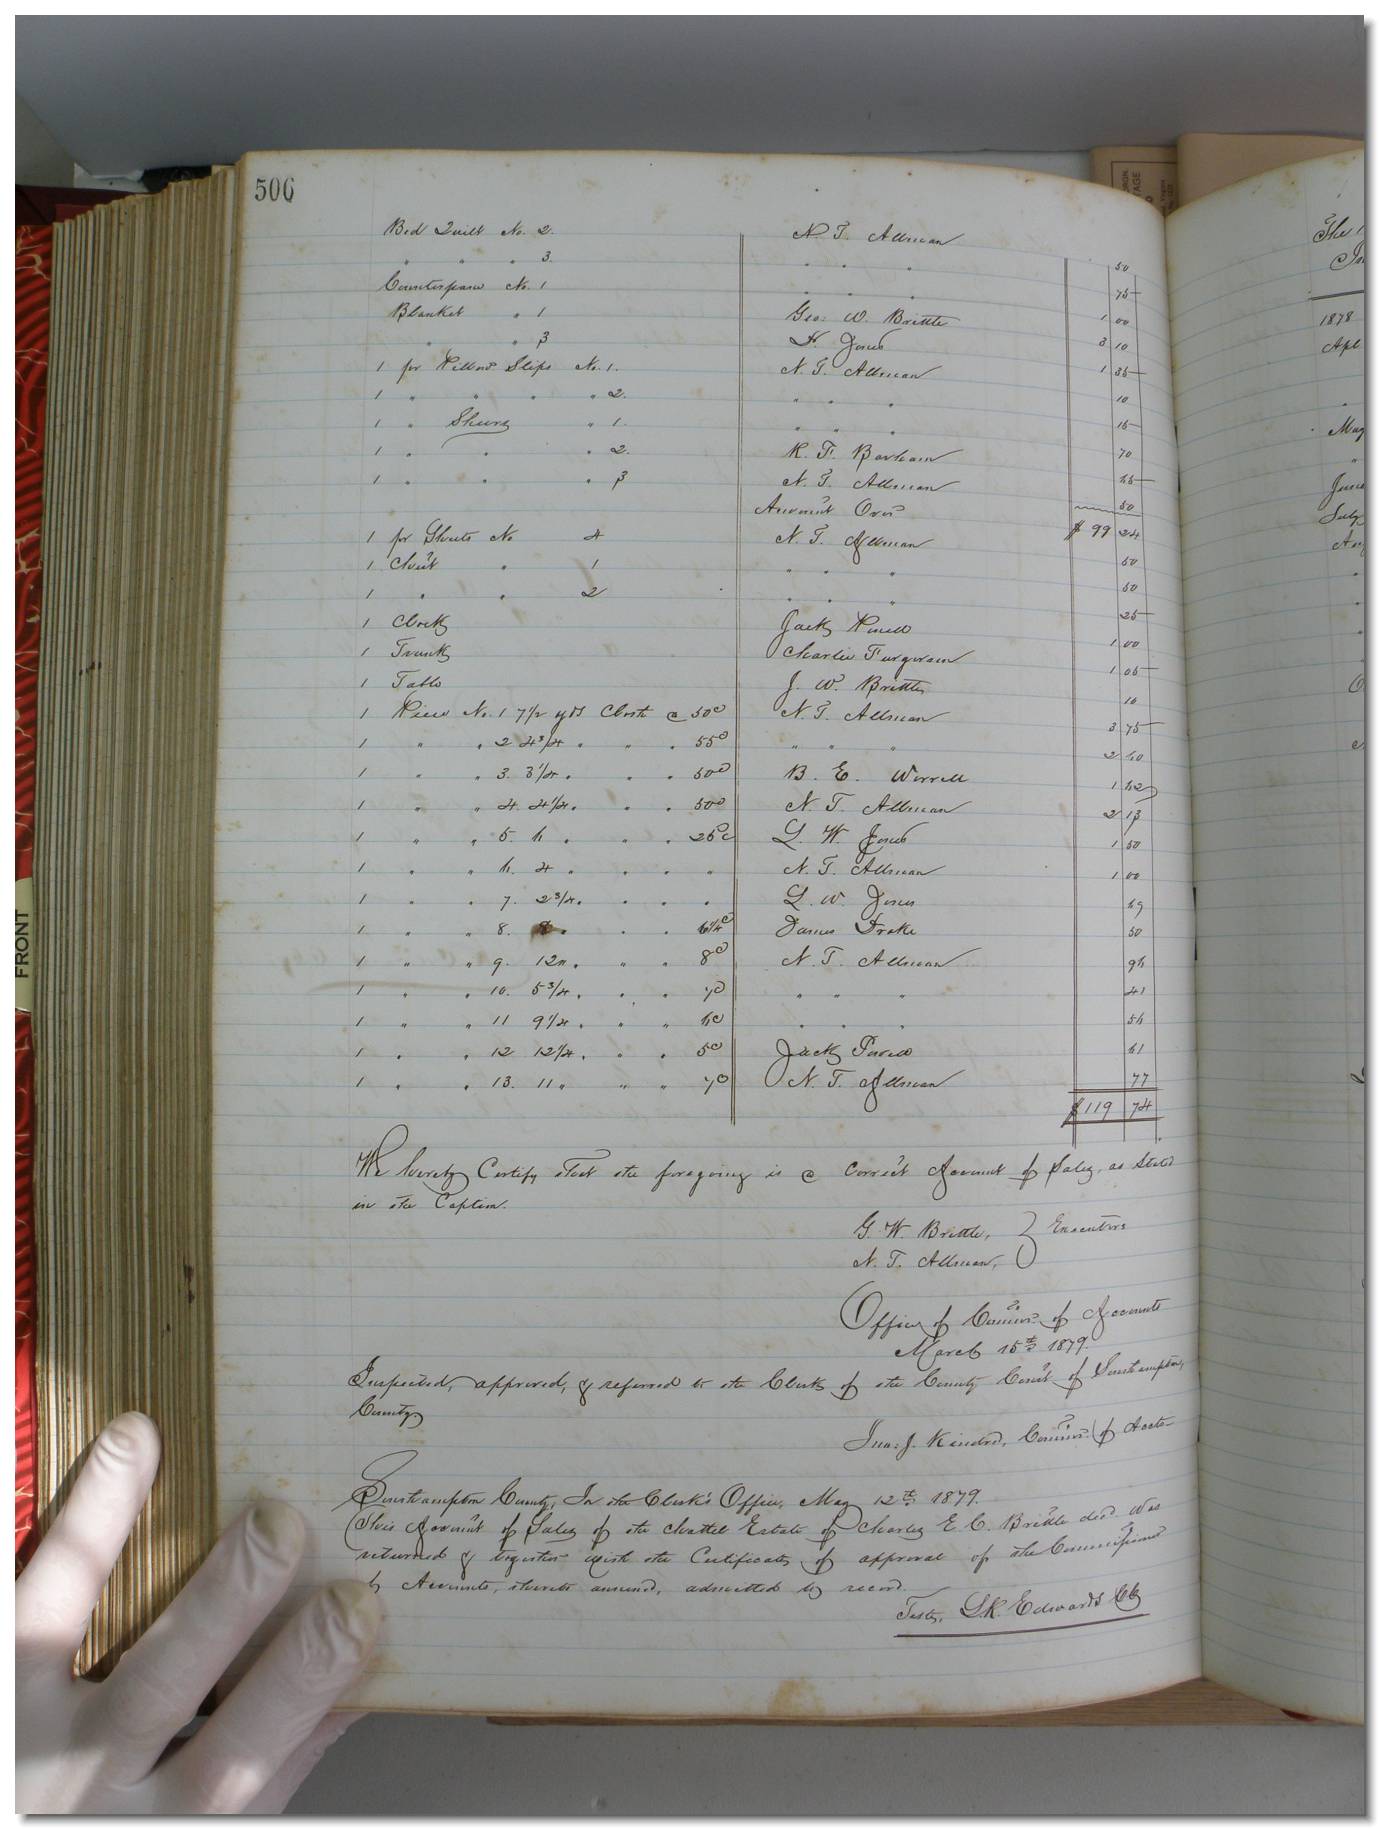 506
Bed Quilt No. 2. N. T. Allman 50
" " " 3. " " " 75
Counterpane No. 1 " " " 1 00
Blanket " 1 Geo: W. Brittle 3 10
" " 3 Jones 1 35
1 pr Pillow Slips No. 1. N. T. Allman 10
1 " " " " 2. " " " 15
1 " Sheets " 1. " " " 70
1 " " " 2. R. F. Barham 65
1 " " " 3 N. T. Allman 50
Amount Over $ 99 24
1 pr Sheets No 4 N. T. Allman 50
1 " 1 " " " 50
1 " " 2 " " " 25
1 Clock Jack Powell 1 00
1 Trunk Charlie Furguson 1 05
1 Table J. W. Brittle 10
1 Piece No. 1 7 1/2 yds Cloth @ 50c N. T. Allman 3 75
1 " " 2 4 3/4 " " " 55c " " " 2 60
1 " " 3. 3 1/4 " " " 50c B. E. Worrell 1 62
1 " " 4. 4 1/4 " " " 50c N. T. Allman 2 13
1 " " 5. 6 " " " 25c L. W. Jones 1 50
1 " " 6. 4 " " " " N. T. Allman 1 00
1 " " 7. 2 3/4 " " " " L. W. Jones 69
1 " " 8. 8 " " " 6 1/4c James Drake 50
1 " " 9. 12 " " " 8c N. T. Allman 96
1 " " 10. 5 3/4 " " " 7c " " " 41
1 " " 11 9 1/4 " " " 6c " " " 56
1 " " 12 12 1/4 " " " 5c Jack Powell 61
1 " " 13. 11 " " " 7c N. T. Allman 77
$ 119 74
We hereby Certify that the foregoing is a correct Account of Sales, as stated
in the Caption.
G. W. Brittle, } Executors
N. T. Allman,
Office of Commr. of Accounts
March 15th 1879.
Inspected, approved, & referred to the Clerk of the County Court of Southampton,
County
Jno: J. Kindred, Commr. of Accts
Southampton County, In the Clerk's Office, May 12th 1879.
This Account of Sales of the chattel Estate of Charles E. C. Brittle decd. was
returned & together with the Certificate of approval of the Commissioner
of Accounts, thereto annexed, admitted to record.
Teste, L. R. Edwards Clk
The
1878
Apl
May
"
June
July
FRONT